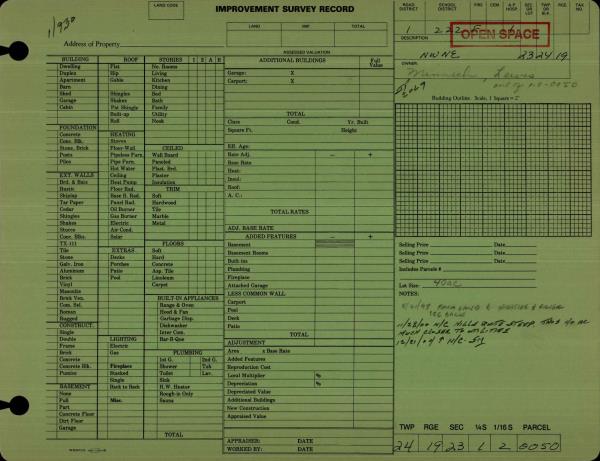 LAND CODE
IMPROVEMENT SURVEY RECORD
ROAD DISTRICT SCHOOL DISTRICT FIRE CEM A.P. HOSP SEC OR LOT TWP OR BLK RGE TAX NO.
1 222
OPEN SPACE
DESCRIPTION
NWNE 23 24 19
OWNER
LAND IMP. TOTAL
ASSESSED VALUATION
1/930
Address of Property
BUILDING ROOF STORIES 1 2 A B
Dwelling Flat No. Rooms
Duplex Hip Living
Apartment Gable Kitchen
Barn Dining
Shed Shingles Bed
Garage Shakes Bath
Cabin Pat Shingle Family
Built-up Utility
Roll Nook
FOUNDATION
Concrete HEATING
Conc. Blk. Stoves CEILED
Stone, Brick Floor-Wall Wall Board
Posts Pipeless Furn. Paneled
Piles Pipe Furn. Plast. Brd.
Hot Water Plaster
EXT. WALLS Ceiling Insulation
Brd. & Bats Heat Pump
Rustic Floor Rad. TRIM
Shiplap Base B. Rad. Soft
Tar Paper Panel Rad. Hardwood
Cedar Oil Burner Tile
Shingles Gas Burner Marble
Shakes Electric Metal
Stucco Air Cond.
Conc. Blks. Solar
TX-111 FLOORS
Tile EXTRAS. Soft
Stone Decks Hard
Galv. Iron Porches Concrete
Aluminum Patio Asp. Tile
Brick Pool Linoleum
Vinyl Carpet
Masonite
Brick Ven. BUILT-IN APPLIANCES
Com. Sel. Range & Oven
Boread Hood & Fan
Rugged Garbage Disp.
CONSTRUCT. Dishwasher
Single Inter Com.
Double LIGHTING Bar-B-Que
Frame Electric
Brick Gas PLUMBING
Concrete 1st G. 2nd G.
Concrete Blk. Fireplace Shower Tub
Pumice Stacked Toilet Lav.
Single Sink
BASEMENT Back to Back H.W. Heater
None Rough-in Only
Full Misc. Sauna
Part
Concrete Floor
Dirt Floor
Garage
TOTAL
ADDITIONAL BUILDINGS Full Value
Garage: X
Carport: X
TOTAL
Class Cond. Yr. Built
Square Ft. Height
Eff. Age
Rate Adj. – +
Base Rate
Heat:
Insul:
Roof:
A. C.:
TOTAL RATES
ADJ. BASE RATE
ADDED FEATURES – +
Basement
Basement Rooms
Built-ins
Plumbing
Fireplace
Attached Garage
LESS COMMON WALL
Carport
Pool
Deck
Patio
TOTAL
ADJUSTMENT
Area x Base Rate
Added Features
Reproduction Cost
Local Multiplier %
Depreciation %
Depreciated Value
Additional Buildings
New Construction
Appraised Value
APPRAISER: DATE
WORKED BY: DATE
Building Outline. Scale, 1 Square =
Selling Price Date
Selling Price Date
Selling Price Date
Includes Parcels #
Lot Size: 40 AC
NOTES:
TWP RGE SEC 1/4S 1/16 S PARCEL
24 19 23 1 2 0050